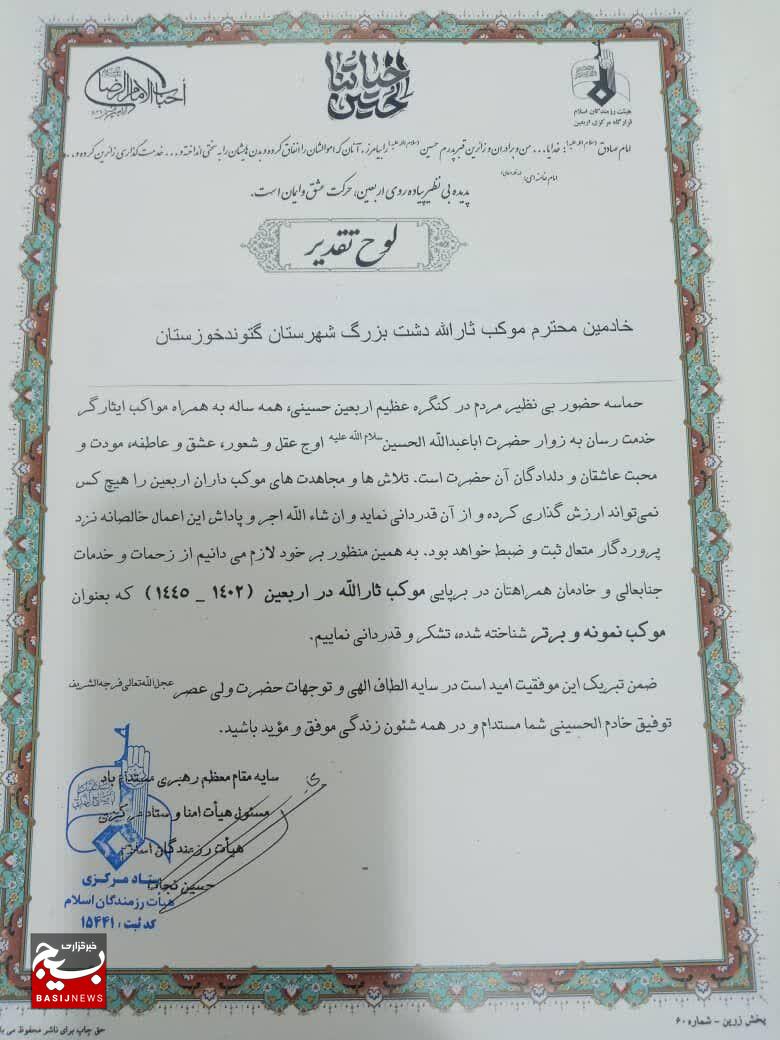 هیئت رزمندگان اسلام
قرارگاه مرکزی اربعین
امام صادق (سلام الله علیه): خدایا... من و برادران و زائرین قبر پدرم حسین (سلام الله علیه) را بیامرز، آنان که اموالشان را انفاق کرده و بدن هایشان را به سختی انداخته و... خدمت گذاری زائرین کرده و...
امام خامنه ای:
پدیده بی نظیر پیاده روی اربعین، حرکت عشق و ایمان است.
لوح تقدیر
خادمین محترم موکب ثارالله دشت بزرگ شهرستان گتوندخوزستان
حماسه حضور بی نظیر مردم در کنگره عظیم اربعین حسینی، همه ساله به همراه مواکب ایثارگر
خدمت رسان به زوار حضرت اباعبدالله الحسین سلام الله علیه اوج عقل و شعور، عشق و عاطفه، مودت و
محبت عاشقان و دلدادگان آن حضرت است. تلاش ها و مجاهدت های موکب داران اربعین را هیچ کس
نمی‌تواند ارزش گذاری کرده و از آن قدردانی نماید و ان شاء الله اجر و پاداش این اعمال خالصانه نزد
پروردگار متعال ثبت و ضبط خواهد بود. به همین منظور بر خود لازم می دانیم از زحمات و خدمات
جنابعالی و خادمان همراهتان در برپایی موکب ثارالله در اربعین (۱۴۰۲ _ ۱۴۴۵) که بعنوان
موکب نمونه و برتر شناخته شده، تشکر و قدردانی نماییم.
ضمن تبریک این موفقیت امید است در سایه الطاف الهی و توجهات حضرت ولی عصر عجل الله تعالی فرجه الشریف
توفیق خادم الحسینی شما مستدام و در همه شئون زندگی موفق و مؤید باشید.
سایه مقام معظم رهبری مستدام باد
مسئول هیأت امنا و ستاد مرکزی
هیأت رزمندگان اسلام
حسین نجات
ستاد مرکزی
هیأت رزمندگان اسلام
کد ثبت: ۱۵۴۴۱
خبرگزاری
بسیج
BASIJNEWS
پخش زرین - شماره ۶۰
حق چاپ برای ناشر محفوظ می با